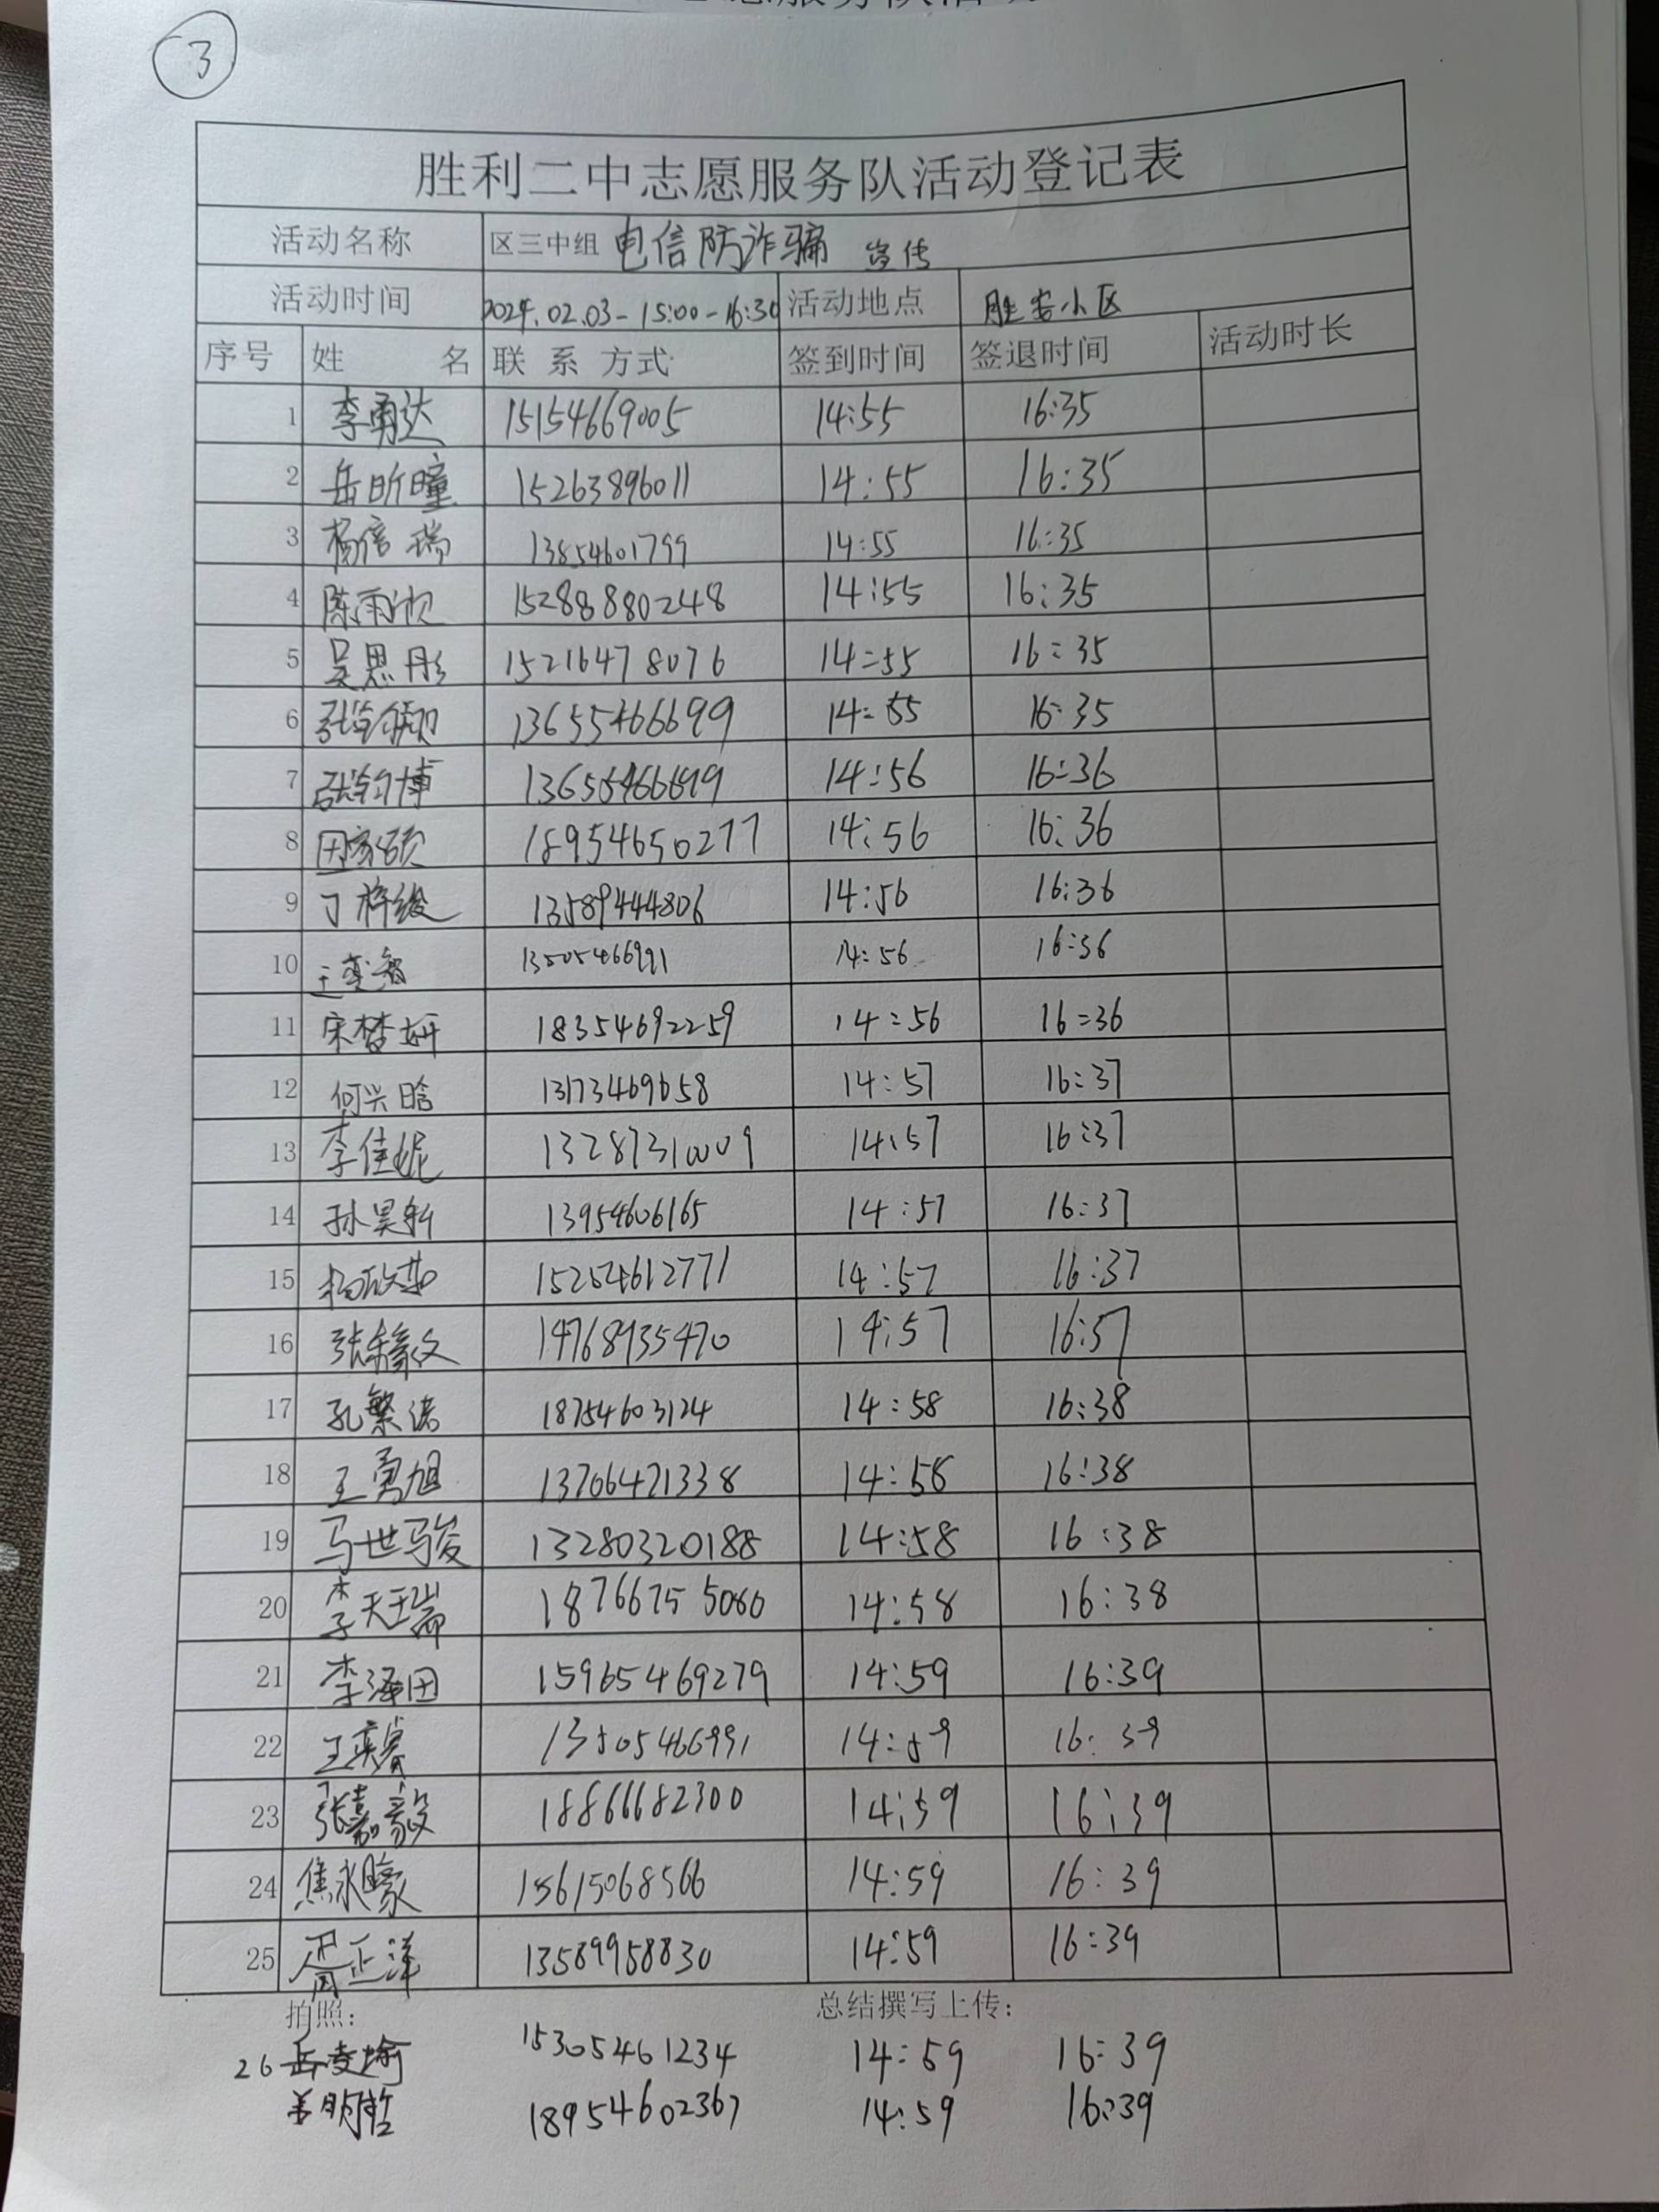 3
胜利二中志愿服务队活动登记表
活动名称 区三中组 电信防诈骗 宣传
活动时间 2024.02.03-15:00-16:30 活动地点 胜安小区
序号 姓 名 联 系 方式 签到时间 签退时间 活动时长
1 李勇达 15154669005 14:55 16:35
2 岳昕曈 15263896011 14:55 16:35
3 杨信瑞 13854601799 14:55 16:35
4 陈雨欣 15288880248 14:55 16:35
5 吴思彤 15216478076 14:55 16:35
6 13655466699 14:55 16:35
7 13655466699 14:56 16:36
8 田家硕 18954650277 14:56 16:36
9 丁梓峻 13589444806 14:56 16:36
10 13505466991 14:56 16:36
11 宋梦妍 18354692259 14:56 16:36
12 何兴晗 13173469658 14:57 16:37
13 李佳妮 13287310009 14:57 16:37
14 孙昊新 13954606165 14:57 16:37
15 15254612771 14:57 16:37
16 14768935470 14:57 16:57
17 孔繁诺 18754603124 14:58 16:38
18 王勇旭 13706471338 14:58 16:38
19 马世骏 13280320188 14:58 16:38
20 李天瑞 18766755080 14:58 16:38
21 李泽田 15965469279 14:59 16:39
22 王奕睿 13505466991 14:59 16:39
23 张嘉毅 18866682300 14:59 16:39
24 焦永曚 15615068566 14:59 16:39
25 周正洋 13589958830 14:59 16:39
拍照: 总结撰写上传:
26 15305461234 14:59 16:39
姜明哲 18954602367 14:59 16:39